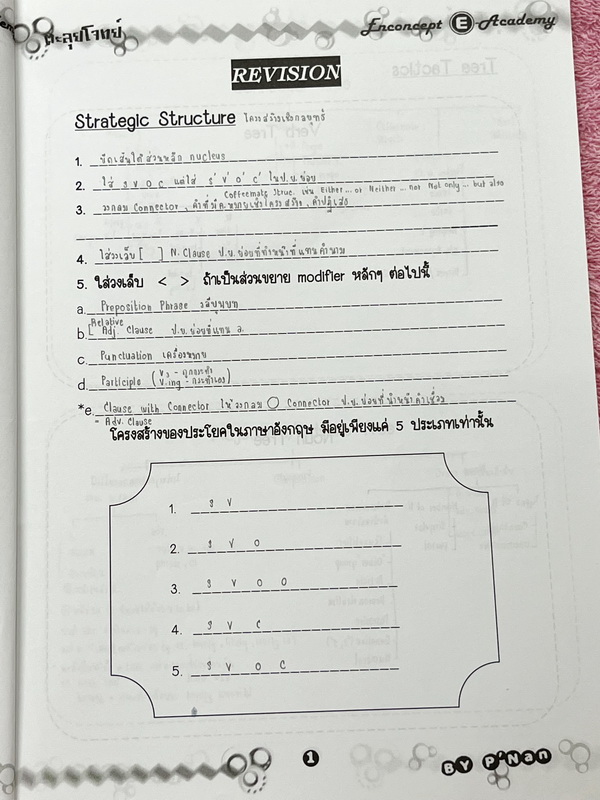 ตะลุยโจทย์
Enconcept E-Academy
REVISION
Strategic Structure โครงสร้างเชิงกลยุทธ์
1. ขีดเส้นใต้ส่วนหลัก nucleus
2. ใส่ S V O C แต่ใส่ S' V' O' C' ในป.ย.ย่อย
Coffeemate Struc. เช่น Either ... or Neither ... nor Not only ... but also
3. วงกลม Connector, คำที่มีค.หมายเชิงโครงสร้าง, คำปฏิเสธ
4. ใส่วงเล็บ [ ] N. Clause ป.ย.ย่อยที่ทำหน้าที่แทนคำนาม
5. ใส่วงเล็บ < > ถ้าเป็นส่วนขยาย modifier หลักๆ ต่อไปนี้
a. Preposition Phrase วลีบุพบท
Relative
b. Adj. Clause ป.ย.ย่อยที่แทน a.
c. Punctuation เครื่องหมาย
d. Participle (V3 - ถูกกระทำ
V.ing - กระทำเอง)
*e. Clause with Connector ให้วงกลม ◯ Connector ป.ย.ย่อยที่นำหน้าคำเชื่อม
- Adv. Clause
โครงสร้างของประโยคในภาษาอังกฤษ มีอยู่เพียงแค่ 5 ประเภทเท่านั้น
1. S V
2. S V O
3. S V O O
4. S V C
5. S V O C
1
BY P'Nan